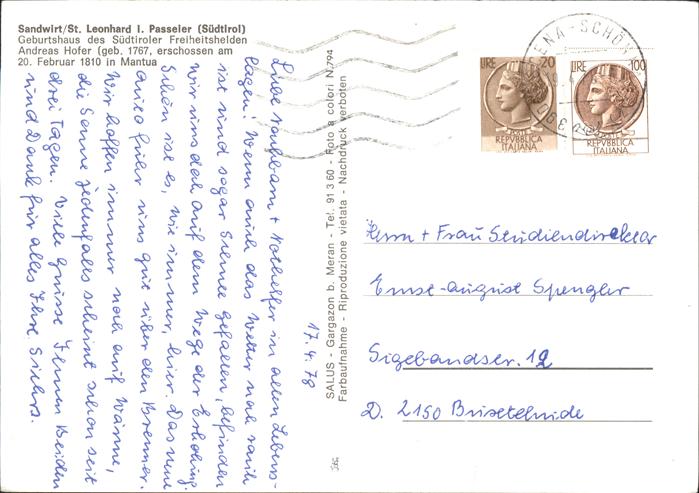 Sandwirt/St. Leonhard I. Passeier (Südtirol)
Geburtshaus des Südtiroler Freiheitshelden
Andreas Hofer (geb. 1767, erschossen am
20. Februar 1810 in Mantua
17.4.78
Liebe Nachbarn + Nothelfer in allen Lebens-
lagen! Wenn auch das Wetter noch rauh
ist und sogar Schnee gefallen, befinden
wir uns doch auf dem Wege der Erholung.
Schön ist es, wie immer, hier. Das neue
Auto fuhr uns gut über den Brenner.
Wir hoffen immer noch auf Wärme,
die Sonne jedenfalls scheint schon seit
drei Tagen. Viele Grüsse Ihnen Beiden
und Dank für alles Ihre
SALUS - Gargazon b. Meran - Tel. 91 3 60 - Foto a colori N.794
Farbaufnahme - Riproduzione vietata - Nachdruck verboten
ENA-SCHÖN
LIRE 20
POSTE
REPVBBLICA
ITALIANA
LIRE 100
POSTE
REPVBBLICA
ITALIANA
Herrn + Frau Studiendirektor
Ernst-August Spengler
Sigebandstr. 12
D. 2150 Buxtehude